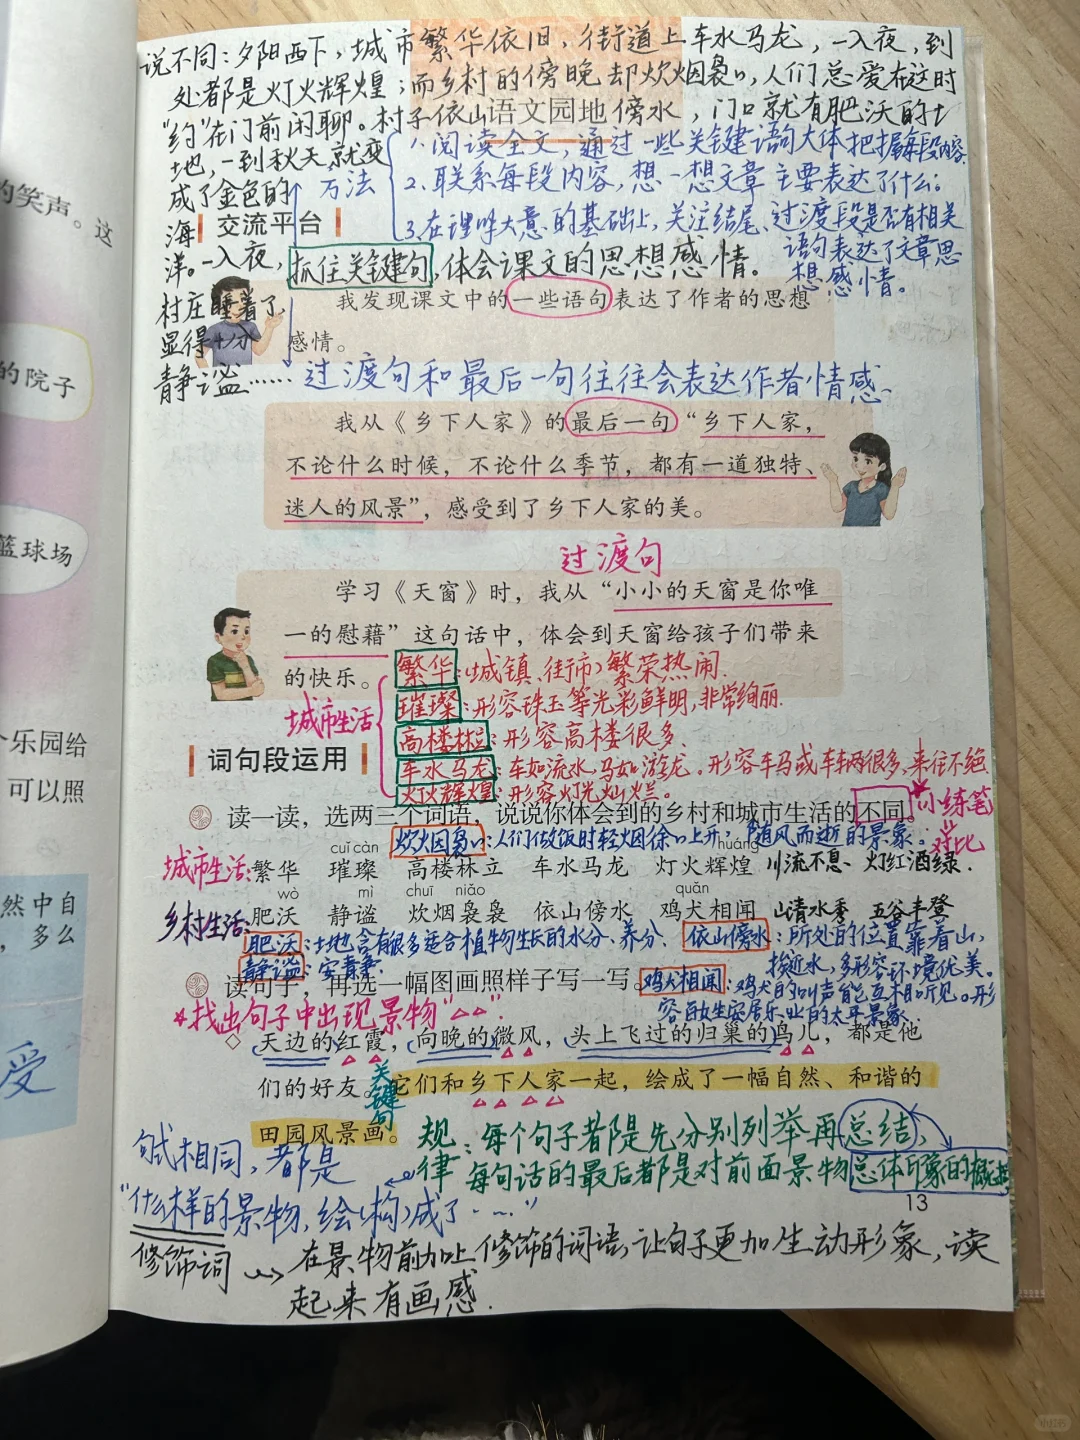 说不同：夕阳西下，城市繁华依旧，街道上车水马龙，一入夜，到
处都是灯火辉煌；而乡村的傍晚却炊烟袅袅，人们总爱在这时
"约"在门前闲聊。村子依山傍水，门口就有肥沃的土
语文园地
地，一到秋天，就变
成了金色的
海
洋。一入夜，
村庄睡着了，
显得十分
静谧……
方法
1、阅读全文，通过一些关键语句大体把握每段内容。
2、联系每段内容，想一想文章主要表达了什么；
3、在理解大意的基础上，关注结尾、过渡段是否有相关
语句表达了文章思
想感情。
交流平台
抓住关键句，体会课文的思想感情。
我发现课文中的一些语句表达了作者的思想
感情。
过渡句和最后一句往往会表达作者情感。
我从《乡下人家》的最后一句“乡下人家，
不论什么时候，不论什么季节，都有一道独特、
迷人的风景”，感受到了乡下人家的美。
过渡句
学习《天窗》时，我从“小小的天窗是你唯
一的慰藉”这句话中，体会到天窗给孩子们带来
的快乐。
城市生活
繁华：(城镇、街市)繁荣热闹.
璀璨：形容珠玉等光彩鲜明，非常绚丽.
高楼林立：形容高楼很多.
车水马龙：车如流水，马如游龙。形容车马或车辆很多，来往不绝
灯火辉煌：形容灯光灿烂。
词句段运用
读一读，选两三个词语，说说你体会到的乡村和城市生活的不同。
小练笔
对比
炊烟袅袅：人们做饭时轻烟徐徐上升，随风而逝的景象。
cuǐ càn huáng
城市生活：繁华 璀璨 高楼林立 车水马龙 灯火辉煌 川流不息、灯红酒绿.
wò mì chuī niǎo quǎn
乡村生活：肥沃 静谧 炊烟袅袅 依山傍水 鸡犬相闻 山清水秀 五谷丰登
肥沃：土地含有很多适合植物生长的水分、养分.
依山傍水：所处的位置靠着山，
挨近水，多形容环境优美。
静谧：安静.
鸡犬相闻：鸡犬的叫声能互相听见。形
容百姓生安居乐业的太平景象.
读句子，再选一幅图画照样子写一写。
*找出句子中出现景物“△△”
天边的红霞，向晚的微风，头上飞过的归巢的鸟儿，都是他
们的好友。它们和乡下人家一起，绘成了一幅自然、和谐的
田园风景画。
关键句
规律：每个句子都是先分别列举再总结，
每句话的最后都是对前面景物总体印象的概括
句式相同，都是
“什么样的景物，绘(构)成了……”
13
修饰词
在景物前加上修饰的词语，让句子更加生动形象，读
起来有画感.
的笑声。这
的院子
篮球场
个乐园给
可以照
然中自
，多么
受
小红书